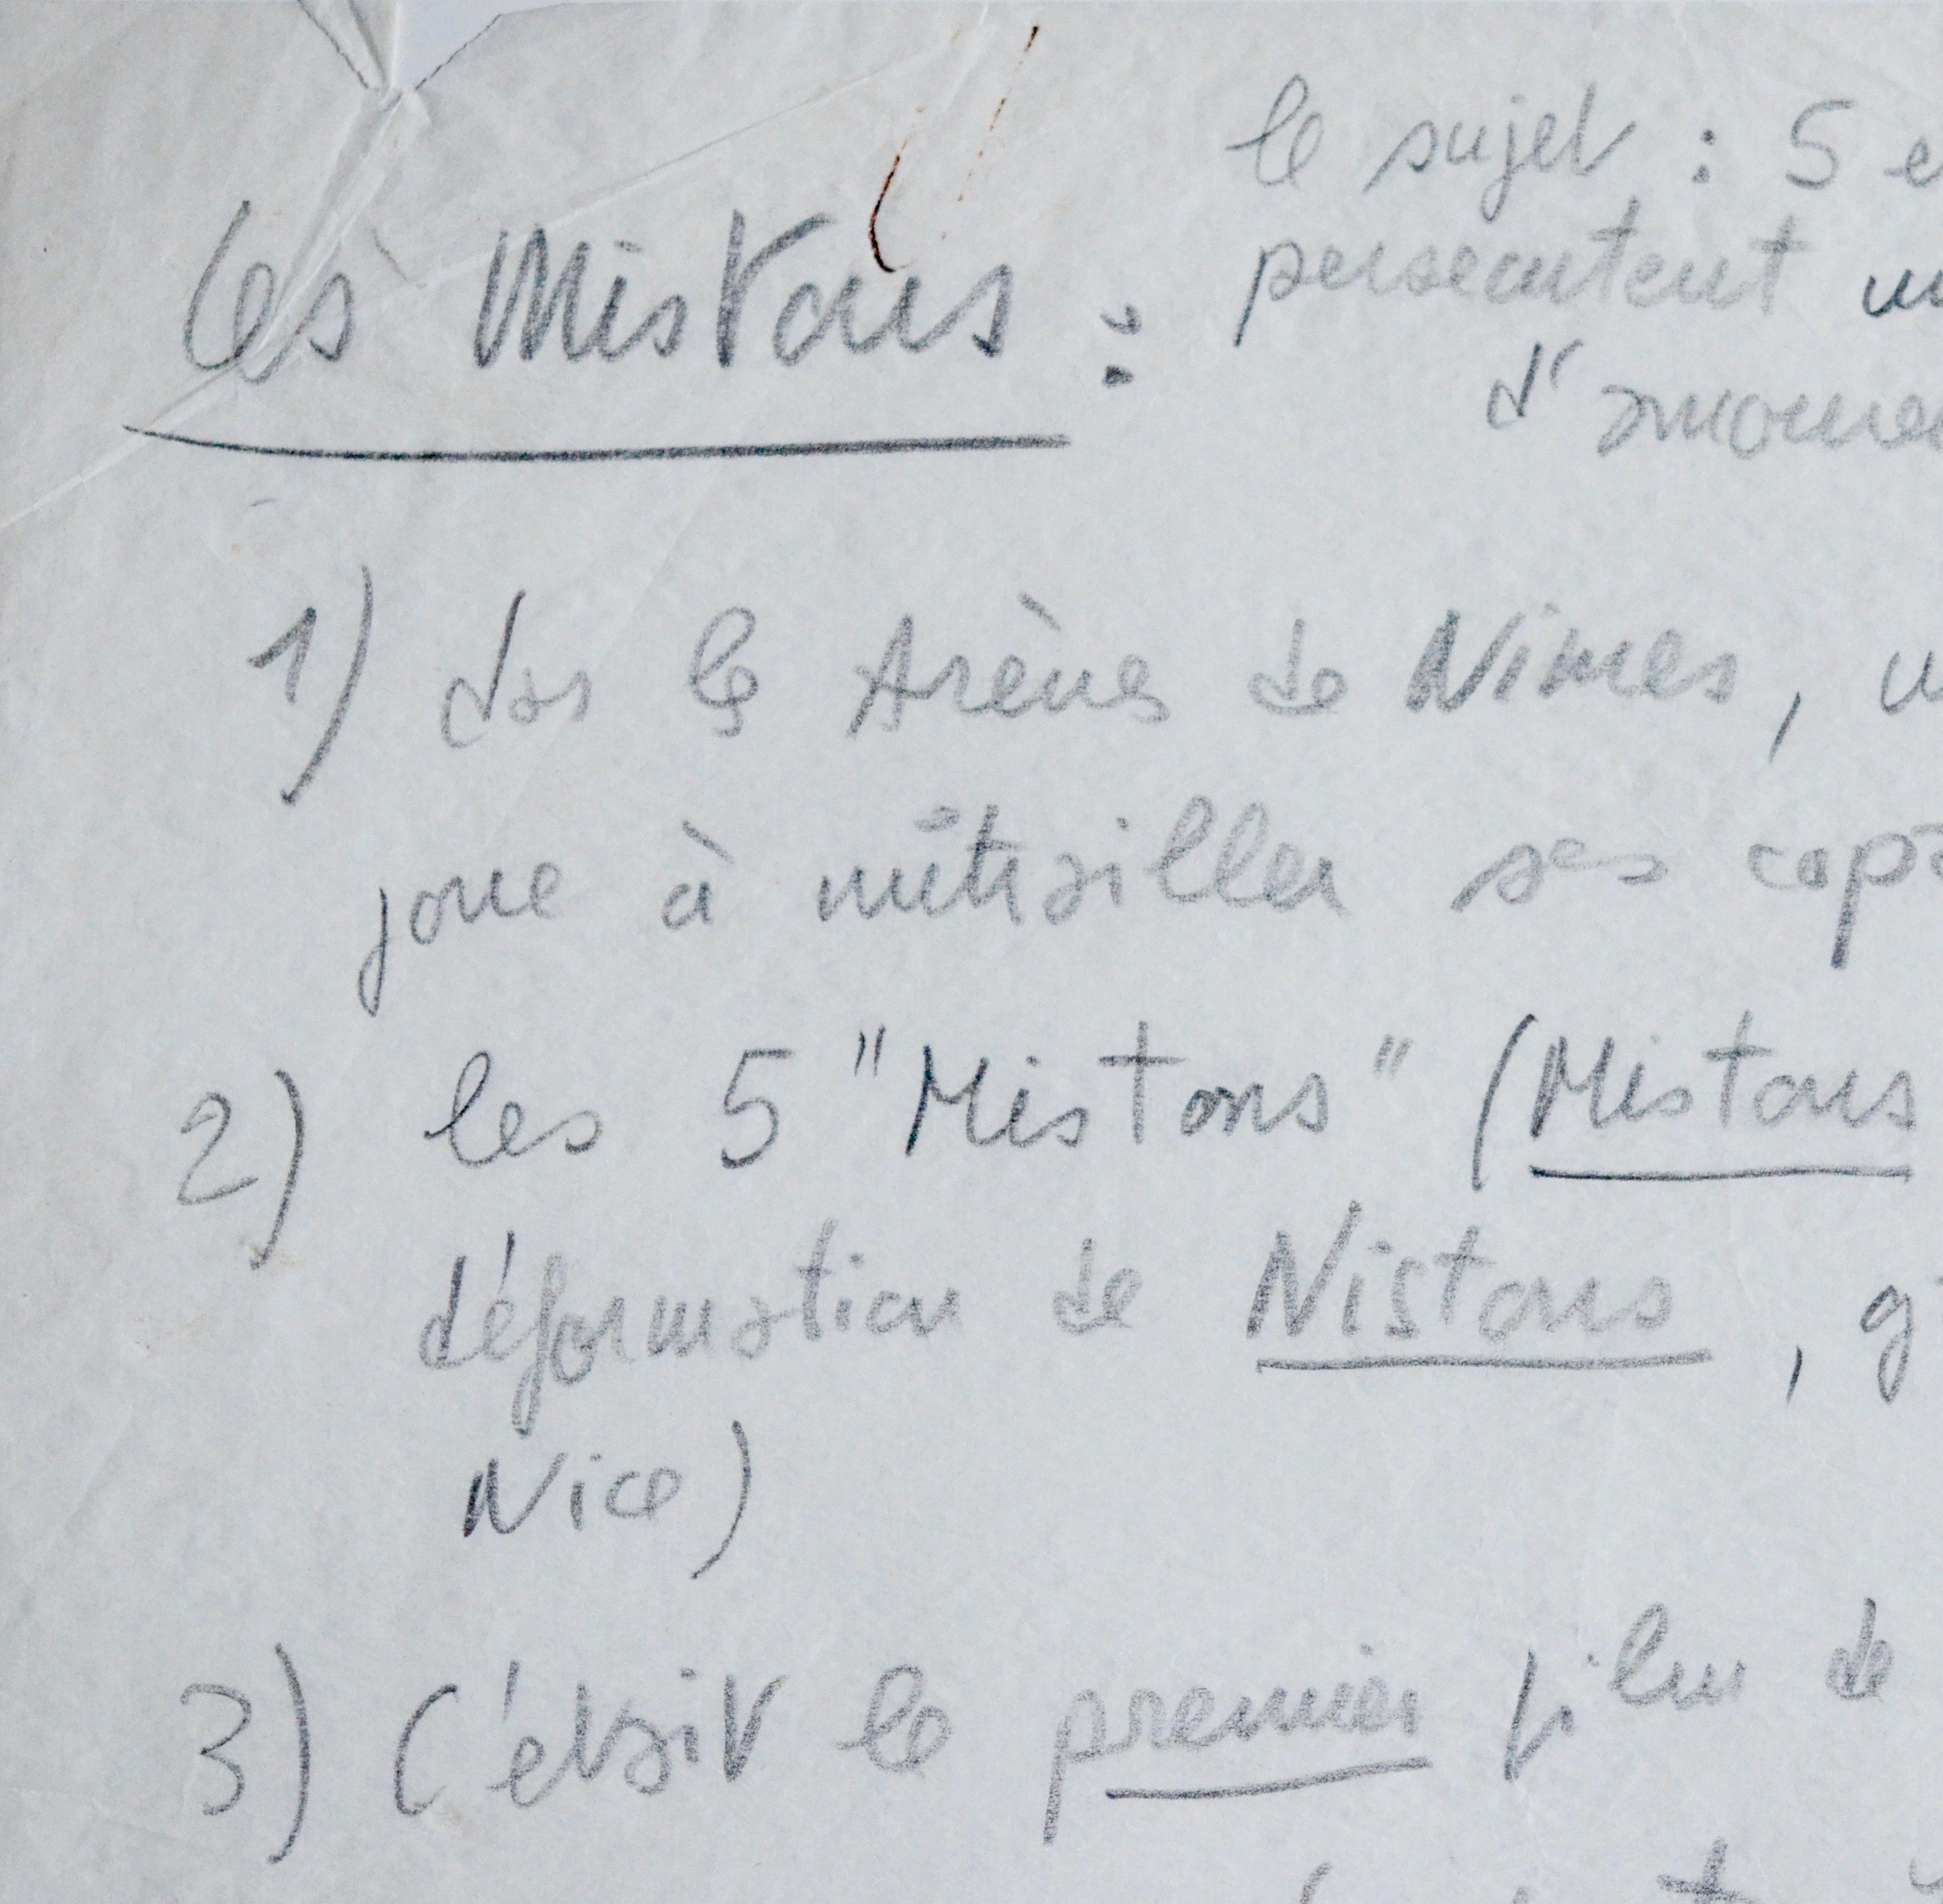 le sujet : 5 e
les Mistons :
persecutent un
d'amoure
1) dans les Arènes de Nimes, u
joue à mitrailler ses copa
2) les 5 "Mistons" (Mistons
déformation de Nistons, g
Nice)
3) C'était le premier film de